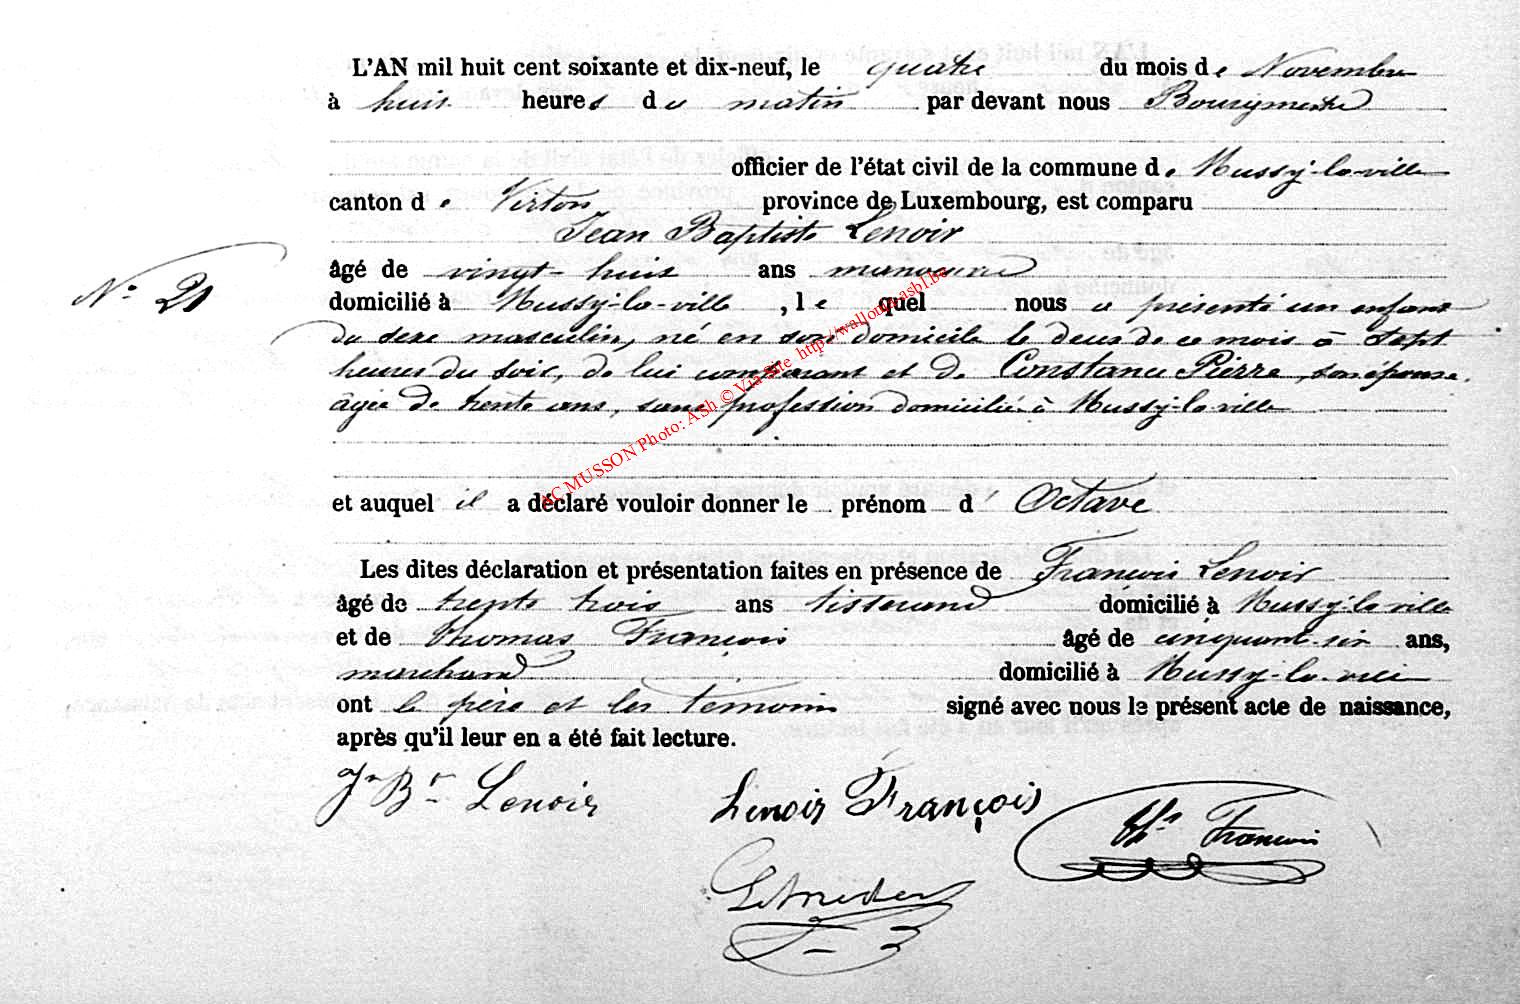 L'AN mil huit cent soixante et dix-neuf, le quatre du mois de Novembre
à huit heures du matin par devant nous Bourgmestre
officier de l'état civil de la commune de Mussy-la-ville
canton de Virton province de Luxembourg, est comparu
Jean Baptiste Lenoir
âgé de vingt-huit ans manœuvre
N° 21
domicilié à Mussy-la-ville, lequel nous a présenté un enfant
du sexe masculin, né en son domicile le deux de ce mois à sept
heures du soir, de lui comparant et de Constance Pierre, son épouse,
âgée de trente ans, sans profession domiciliée à Mussy-la-ville
et auquel il a déclaré vouloir donner le prénom d'Octave
Les dites déclaration et présentation faites en présence de François Lenoir
âgé de trente trois ans tisserand domicilié à Mussy-la-ville
et de Thomas François âgé de cinquante-six ans,
marchand domicilié à Mussy-la-ville
ont le père et les témoins signé avec nous le présent acte de naissance,
après qu'il leur en a été fait lecture.
Jn Bte Lenoir
Lenoir François
Ths François
AC MUSSON Photo: ASh © Via Site http://wallonia-asbl.be